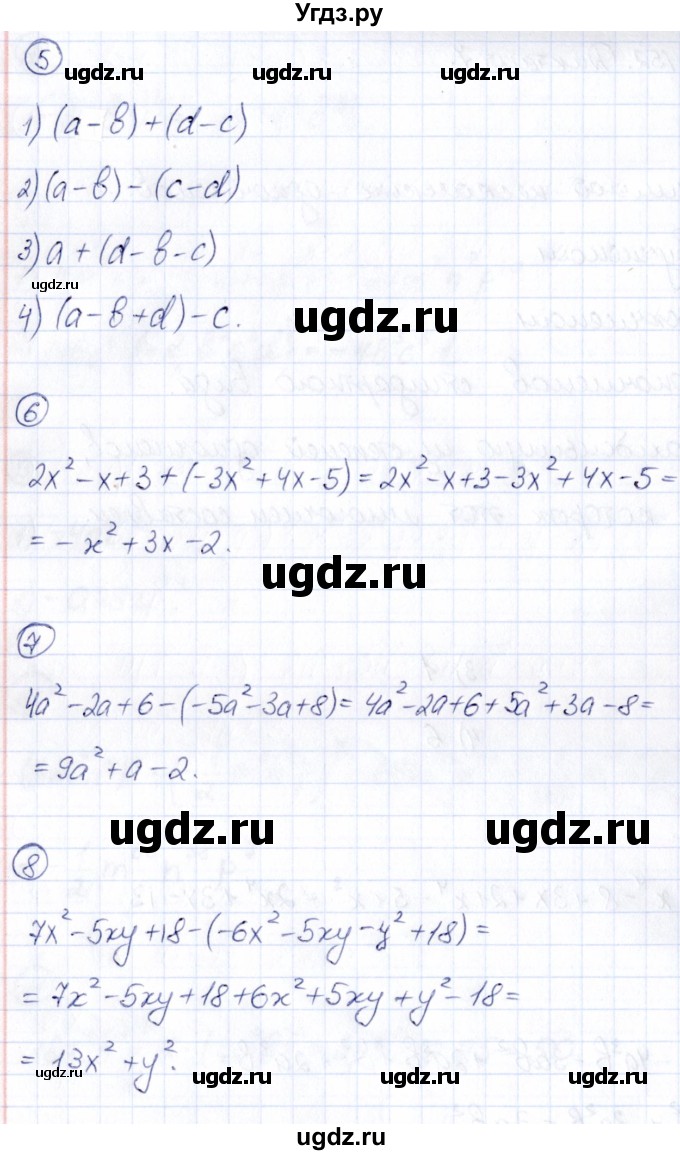 Угдз.ру
5
ugdz.ru ugdz.ru ugdz.ru
1) (a-в)+(d-c)
2) (a-в)-(c-d)
3) a+(d-в-c)
ugdz.ru
4) (a-в+d)-c.
ugdz.ru ugdz.ru
6
2x²-x+3+(-3x²+4x-5)=2x²-x+3-3x²+4x-5=
=-x²+3x-2.
ugdz.ru ugdz.ru
7
4a²-2a+6-(-5a²-3a+8)=4a²-2a+6+5a²+3a-8=
=9a²+a-2.
ugdz.ru ugdz.ru
8
7x²-5xy+18-(-6x²-5xy-y²+18)=
=7x²-5xy+18+6x²+5xy+y²-18=
=13x²+y².
ugdz.ru ugdz.ru ugdz.ru ugdz.ru
ugdz.ru